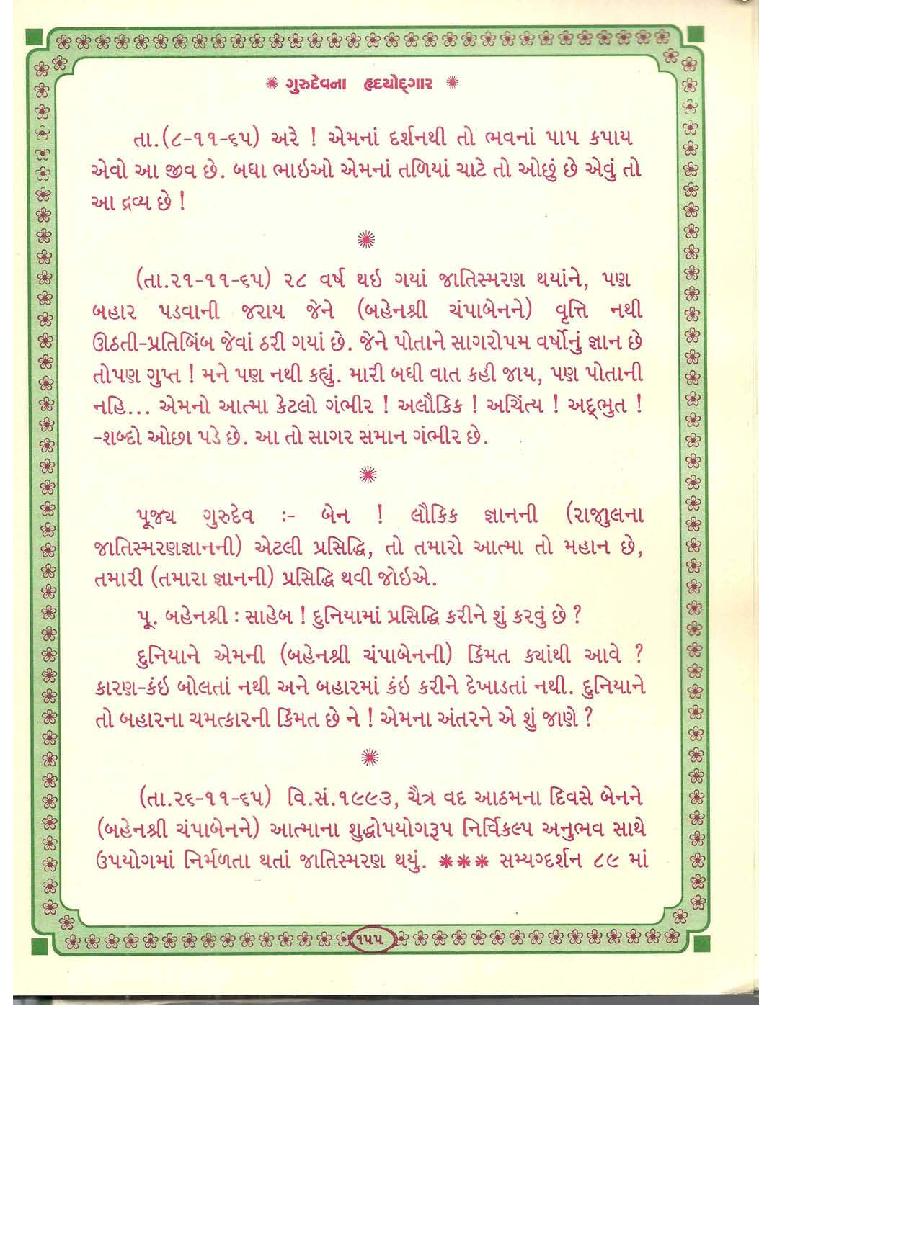 ગુરુદેવના હૃદયોદ્ગાર
તા.(૮-૧૧-૬૫) અરે ! એમનાં દર્શનથી તો ભવનાં પાપ કપાય
એવો આ જીવ છે. બધા ભાઇઓ એમનાં તળિયાં ચાટે તો ઓછું છે એવું તો
આ દ્રવ્ય છે !
(તા.૨૧-૧૧-૬૫) ૨૮ વર્ષ થઇ ગયાં જાતિસ્મરણ થયાંને, પણ
બહાર પડવાની જરાય જેને (બહેનશ્રી ચંપાબેનને) વૃત્તિ નથી
ઊઠતી-પ્રતિબિંબ જેવાં ઠરી ગયાં છે. જેને પોતાને સાગરોપમ વર્ષોનું જ્ઞાન છે
તોપણ ગુપ્ત ! મને પણ નથી કહ્યું. મારી બધી વાત કહી જાય, પણ પોતાની
નહિ... એમનો આત્મા કેટલો ગંભીર ! અલૌકિક ! અચિંત્ય ! અદ્ભુત !
-શબ્દો ઓછા પડે છે. આ તો સાગર સમાન ગંભીર છે.
પૂજ્ય ગુરુદેવ :- બેન ! લૌકિક જ્ઞાનની (રાજુલના
જાતિસ્મરણજ્ઞાનની) એટલી પ્રસિદ્ધિ, તો તમારો આત્મા તો મહાન છે,
તમારી (તમારા જ્ઞાનની) પ્રસિદ્ધિ થવી જોઇએ.
પૂ. બહેનશ્રી : સાહેબ ! દુનિયામાં પ્રસિદ્ધિ કરીને શું કરવું છે ?
દુનિયાને એમની (બહેનશ્રી ચંપાબેનની) કિંમત ક્યાંથી આવે ?
કારણ-કંઇ બોલતાં નથી અને બહારમાં કંઇ કરીને દેખાડતાં નથી. દુનિયાને
તો બહારના ચમત્કારની કિંમત છે ને ! એમના અંતરને એ શું જાણે ?
(તા.૨૬-૧૧-૬૫) વિ.સં.૧૯૯૩, ચૈત્ર વદ આઠમના દિવસે બેનને
(બહેનશ્રી ચંપાબેનને) આત્માના શુદ્ધોપયોગરૂપ નિર્વિકલ્પ અનુભવ સાથે
ઉપયોગમાં નિર્મળતા થતાં જાતિસ્મરણ થયું. *** સમ્યગ્દર્શન ૮૯ માં
૧૫૫